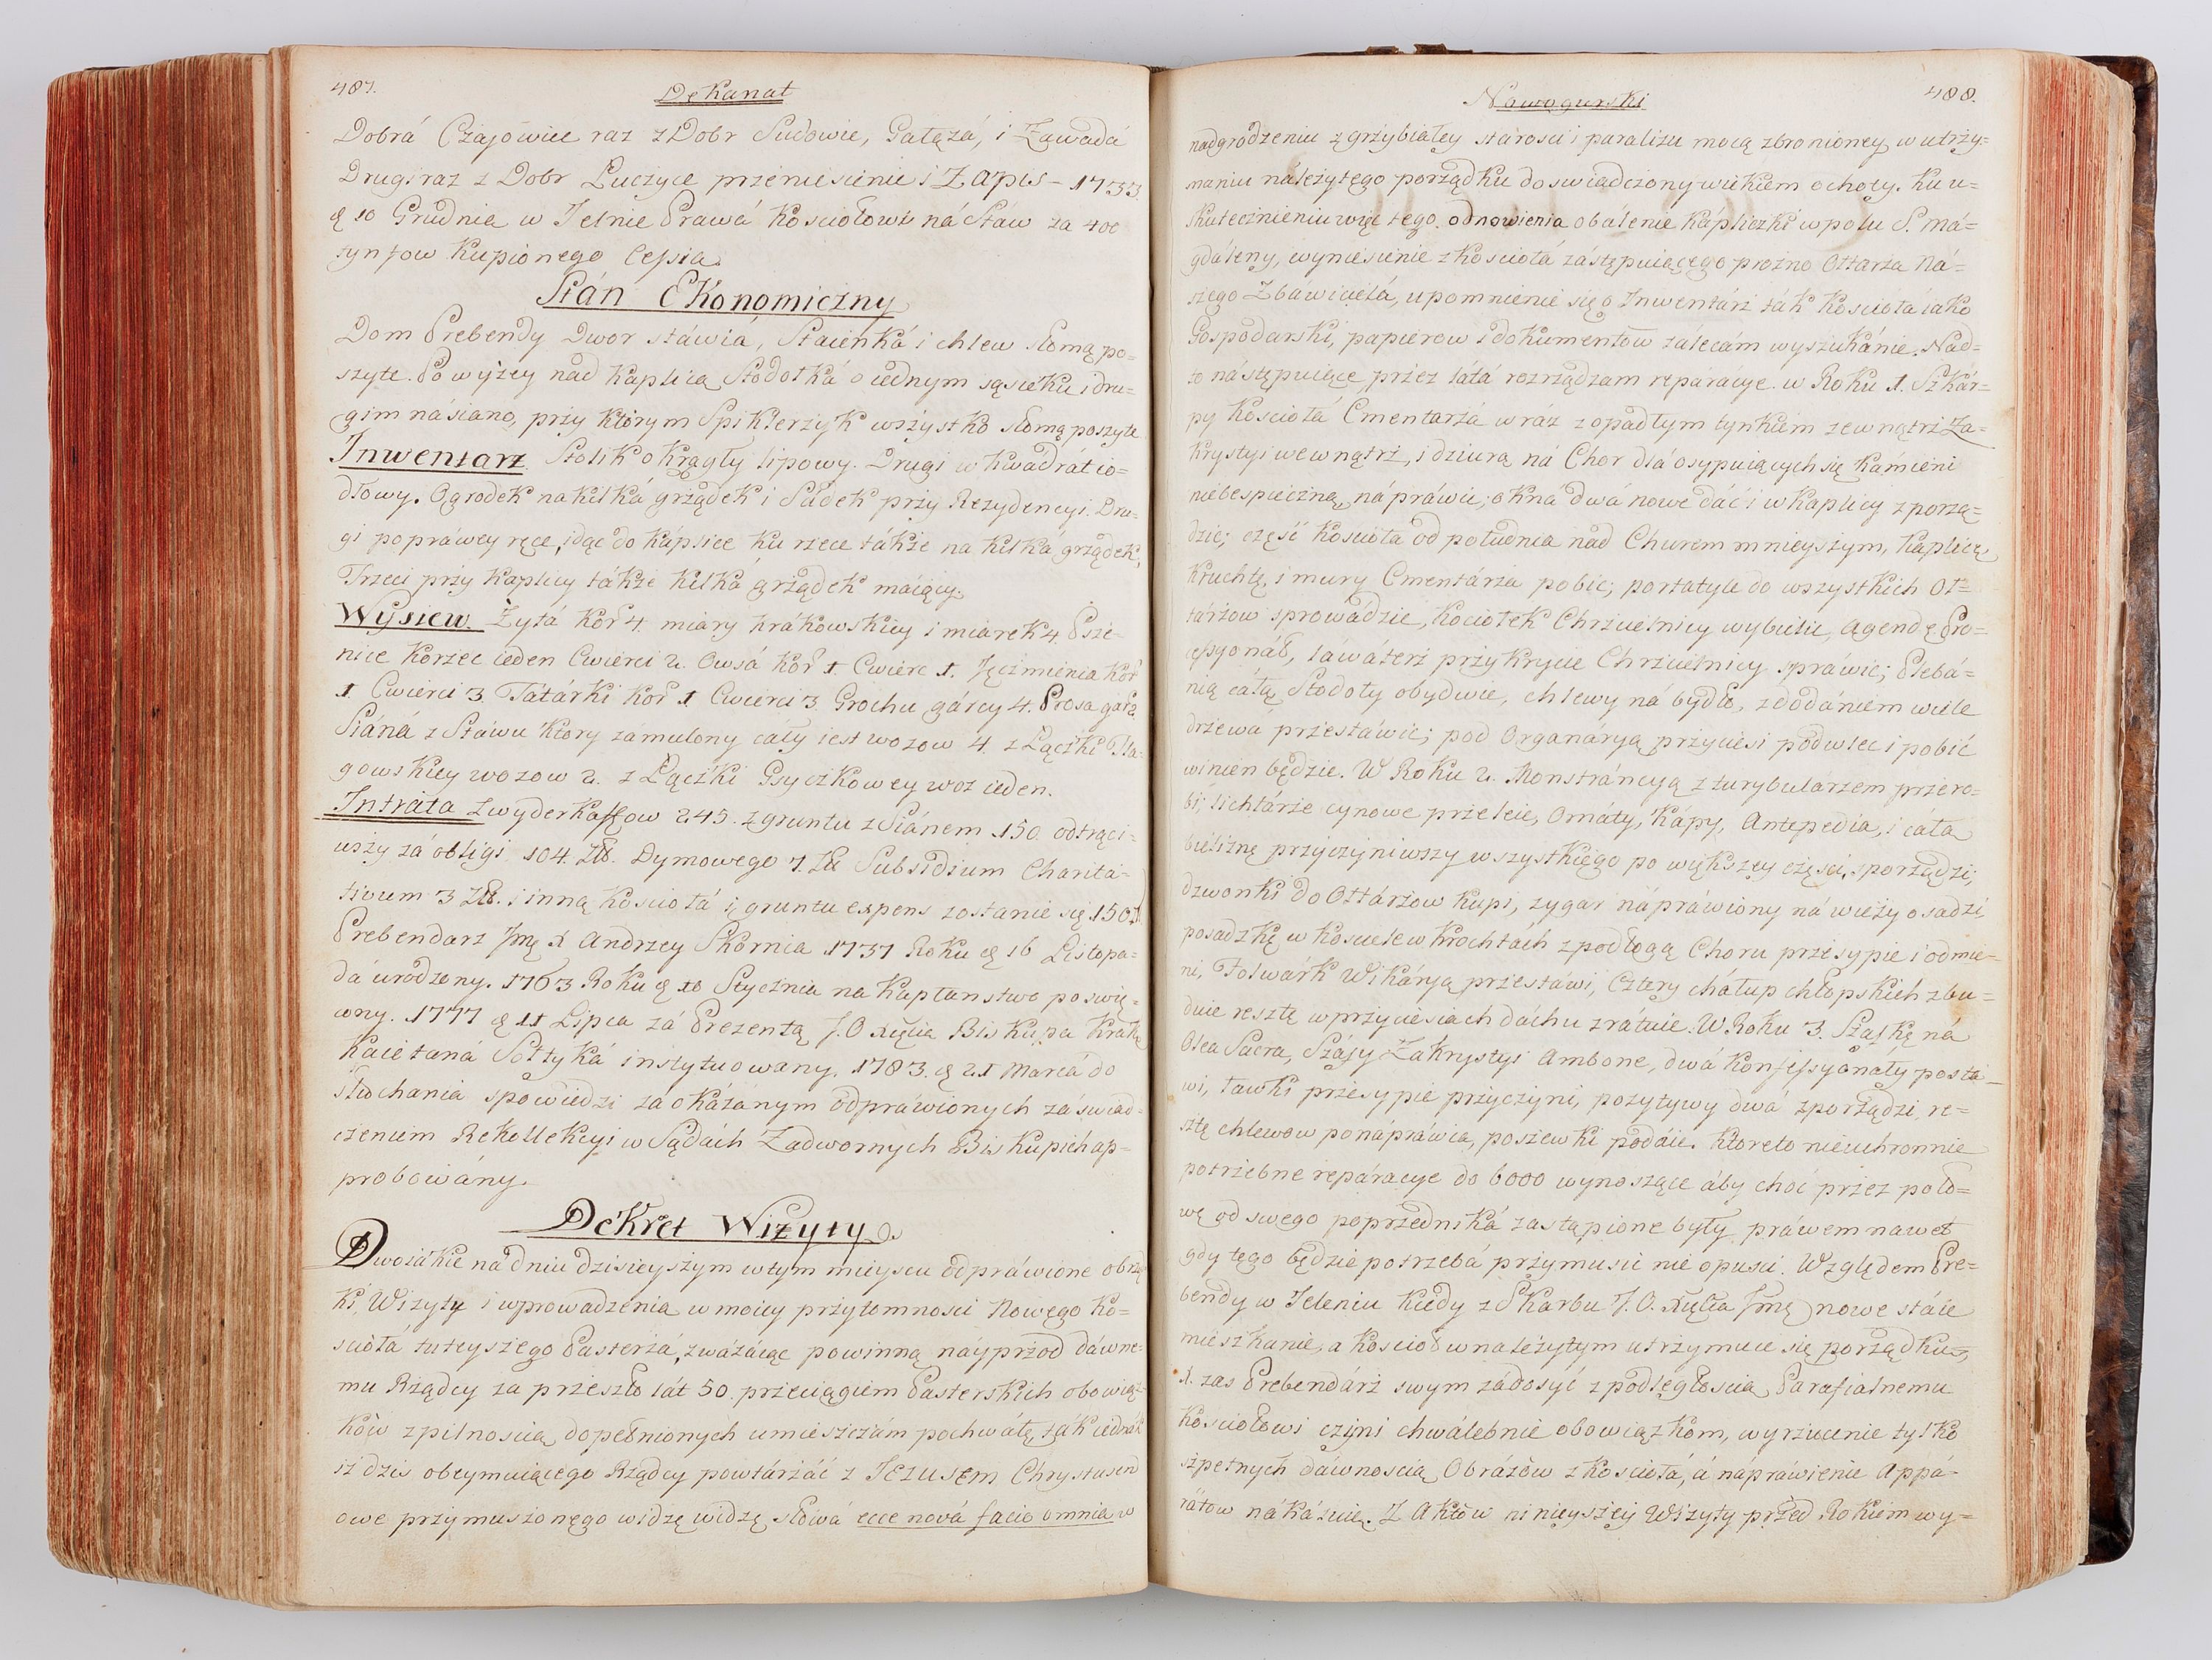 487.
Dekanat
Dobrá Czajowice raz z Dobr Sudowie, Gałęzá, i Zawadá
Drugi raz z Dobr Luczyce przeniesienie i Zapis - 1733
d 10 Grudnia w Jelnie Prawá Kosciołowi ná Stáw za 400
tynfow Kupionego Cessia
Stán Ekonomiczny
Dom Prebendy Dwor stáwiá, Staienká i chlew słomą po=
szyte. Powyżey nád Kaplicą Stodołká o iednym sąsieku i dru=
gim ná siano, przy Ktorym Spikłerzyk wszystko słomą poszyte
Inwentarz Stolik okrągły lipowy. Drugi w kwádrát io=
dłowy. Ogrodek na kilká grządek i Sádek przy Rezydencyi. Dru=
gi po práwey ręce, idąc do Káplice ku rzece tákże na kilká grządek,
Trzeci przy Kaplicy tákże kilká grządek máiący.
Wysiew. Żytá Kor 4. miary krákowskiey i miarek 4 Psze=
nice Korzec ieden Cwierci 2. Owsá Kor 1 Cwierc 1. Jęczmienia Kor
1 Cwierci 3 Tátárki Kor 1 Cwierci 3. Grochu gárcy 4. Prosa gar 2
Siáná z Stáwu Ktory zámulony cáły iest wozow 4. z Łączki
gowskiey wozow 2. z Łączki Gsyczkowey woz ieden.
Intrata z wyderkaffow 245. z gruntu z Siánem 150 odtrąci=
wszy zá obligi 104. Zł. Dymowego 7. Zł Subsidium Charita=
tivum 3 Zł. i inną Kosciołá i gruntu expens zostanie się 150
Prebendarz Jmę X Andrzey Skornia 1737 Roku d 16 Listopa=
dá urodzony. 1763 Roku d 10 Stycznia na Kapłanstwo poswię=
cony. 1777 d 11 Lipca zá Prezentą J. O Xięcia Biskupa Krak
Kaietaná Sołtyká instytuowany. 1783. d 21 Marca do
Słuchania spowiedzi za okázánym odpráwionych zá swiad=
czeniem Rekollekcyi w Sądách Zadwornych Biskupich ap=
probowány.
Dekret Wizyty
Dwoiákie ná dniu dzisieyszym w tym mieyscu odpráwione obrzą
ki, Wizyty i wprowadzenia w moiey przytomnosci Nowego Ko=
sciołá tuteyszego Pasterzá, zwáżáiąc powinną náyprzod dáwne=
mu Rządcy za przeszło lát 50. przeciągiem Pasterskich obowiąz
ków z pilnoscią dopełnionych umieszczám pochwáłę, ták iednák
iż dzis obeymuiącego Rządcy powtárzáć z Jezusem Chrystusem
owe przymuszonego widzę widzę słowá ecce nová facio omnia w
Nowogurski
488.
nadgrodzeniu zgrzybiałey starosci i paraliżu mocą zbronioney w utrzy=
maniu náleżytego porządku doswiádczony wiekiem ochoty. Ku u=
skutecznieniu więc tego odnowienia obálenie Kápliczki w polu S. Má=
gdáleny, wyniesienie z Kosciołá zástępuiącego prozno Ołtarza Ná=
szego Zbáwicielá, upomnienie się o Inwentárz ták Kosciołá iáko
Gospodarski, papierow i dokumentow zálecám wyszukánie. Nad=
to nástępuiące przez látá rozrządzam reparácye. w Roku 1. Szkár=
py Kosciołá Cmentarzá wráz z opádłym tynkiem zewnątrz Za=
krystyi wewnątrz, i dziurą ná Chor dlá osypuiących się kámieni
niebespieczną, nápráwic; okná dwá nowe dáć i w Kaplicy zporzą=
dzic; część Kosciołá od południa nad Churem mnieyszym, Kaplicą
Kruchtę, i mury Cmentárza pobic; portatyle do wszystkich Oł=
tárzow sprowádzic, Kociołek Chrzcielnicy wybielic, Agendę Pro=
cessyonáł, láwáterz przykrycie Chrzcielnicy spráwic; Plebá=
nią cáłą Stodoły obydwie, chlewy ná bydło, z dodániem wiele
drzewá przestáwic; pod Organáryą przyciesi podwlec i pobić
winien będzie. W Roku 2. Monstráncyą z turybularzem przero=
bi; lichtárze cynowe przeleie, Ornáty, Kápy, Antepedia, i całą
bieliznę przyczyniwszy wszystkiego po większey części, sporządzi;
dzwonki do Ołtárzow Kupi, zygar nápráwiony ná wieży osadzi
posadzkę w Kosciele w Krochtách z podłogą Choru przesypie i odmie=
ni, Folwárk Wikáryą przestáwi, Cztery cháłup chłopskich zbu=
duie resztę w przyciesiach dáchu zrátuie. W Roku 3. Szafkę ná
Olea Sacra, Száfy Zakrystyi Ambone, dwá Konfessyonały posta=
wi, ławki przesypie przyczyni, pozytywy dwá zporządzi, re=
sztę chlewow ponápráwia, poszewki podáie. Ktore to nieuchronnie
potrzebne repáracye do 6000 wynoszące áby choć przez poło=
wę od swego poprzedniká zastąpione były, práwem nawet
gdy tego będzie potrzebá przymusic nie opusci. Względem Pre=
bendy w Jeleniu Kiedy z Skarbu J. O. Xięcia Jmę nowe stáie
mieszkanie, a Kosciół w należytym utrzymuie się porządku,
1. zas Prebendárz swym zádosyć z podległoscią Parafialnemu
Kosciołowi czyni chwálebnie obowiązkom, wyrzucenie tylko
szpetnych dáwnoscią Obrázow z Kosciołá, á nápráwienie Appá=
rátow nákázuię. Z Aktow ninieyszey Wizyty przed Rokiem wy=